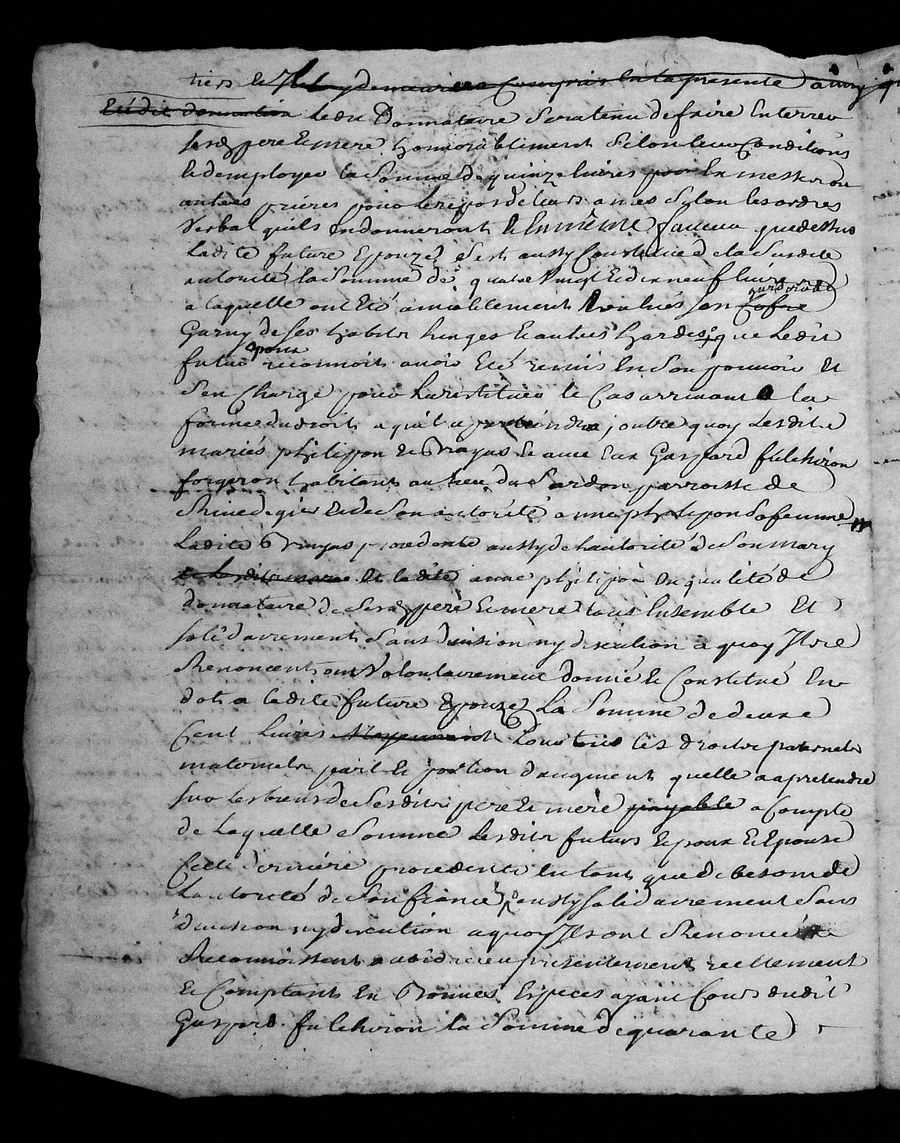 tiers et
Ledit donnataire sera tenu de faire Enterrer
sesd. pere Et mere honnorablement selon leur Conditions
Et demployer la somme de quinze livres En messes ou
autres prieres pour le repos de leurs ames selon les ordres
Verbal quils En donneront Et En même faveur que dessus
Ladite future Epouze sest aussy Constitué de la susdite
autorité la somme de quatre vingt Et dix neuf livres
a laquelle ont Eté amiablement Evalués son garderobe
Garny de ses habits linges Et autres hardes que Ledit
futur Epoux reconnoit avoir Eté remis En son pouvoir Et
s'en Charge pour la restituer le Cas arrivant a la
forme du droit outre quoy Lesdits
mariés philippon Et Vrayas Et avec Eux Gaspard fulchiron
forgeron habitant au lieu du Sardon parroisse de
Rivedegier Et de son autorité anne philippon sa femme
Ladite Vrayas procedante aussy de l'autorité de son mary
Et ladite anne philippon En qualité de
donnataire de sesd. pere Et mere tous Ensemble Et
solidairement sans division ny discution a quoy Ils
Renoncent ont Volontairement donné Et Constitué En
dot a ladite future Epouze La somme de deux
Cent livres pour tous ses droits paternels
maternels part Et portion d'augment quelle a a pretendre
sur les biens de sesdits pere Et mere payable a Compte
de Laquelle somme Lesdits futurs Epoux Et Epouze
Cette derniere procedente En tant que de besoin de
Lautorité de son fiancé aussy solidairement sans
division ny discution a quoy Ils ont Renoncé
Reconnoissent avoir receu presentement reellement
Et Comptant En bonnes Especes ayant Cours dudit
Gaspard fulchiron la somme de quarante